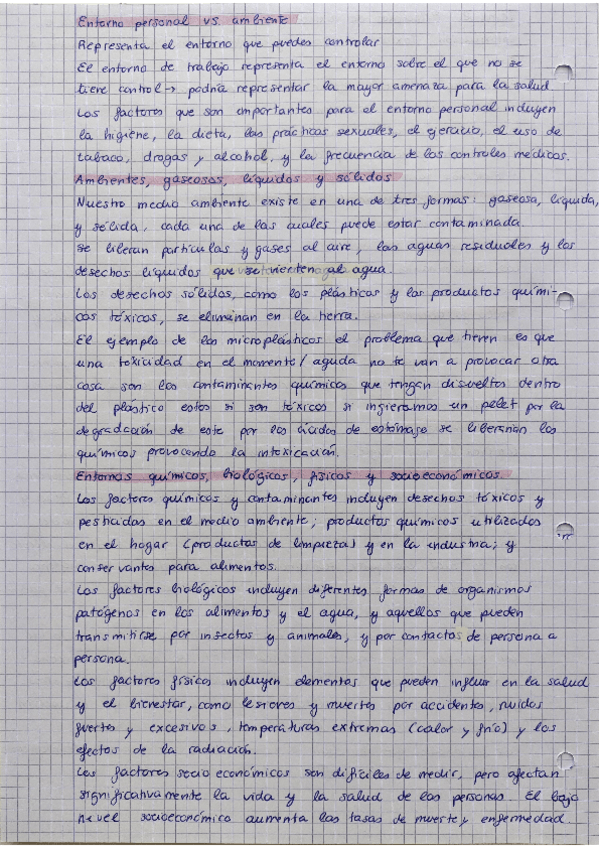 Entorno personal vs. ambiente
Representa el entorno que puedes controlar
El entorno de trabajo representa el entorno sobre el que no se
tiene control → podria representar la mayor amenaza para la salud
Los factores que son importantes para el entorno personal incluyen
la higiene, la dieta, las prácticas sexuales, el ejercicio, el uso de
tabaco, drogas y alcohol, y la frecuencia de los controles médicos.
Ambientes, gaseosos, líquidos y sólidos
Nuestro medio ambiente existe en una de tres formas: gaseosa, líquida,
y sólida, cada una de las cuales puede estar contaminada.
Se liberan partículas y gases al aire, las aguas residuales y los
desechos líquidos que se vierten al agua.
Los desechos sólidos, como los plásticos y los productos quími-
cos tóxicos, se eliminan en la tierra.
El ejemplo de los microplásticos el problema que tienen es que
una toxicidad en el momento/aguda no te van a provocar otra
cosa son los contaminantes químicos que tengan disueltos dentro
del plástico estos si son tóxicos si ingieramos un pelet por la
degradación de este por los ácidos de estómago se liberarian los
químicos provocando la intoxicación.
Entornos químicos, biológicos, físicos y socioeconómicos.
Los factores químicos y contaminantes incluyen desechos tóxicos y
pesticidas en el medio ambiente; productos químicos utilizados
en el hogar (productos de limpieza) y en la industria; y
conservantes para alimentos.
Los factores biológicos incluyen diferentes formas de organismos
patógenos en los alimentos y el agua, y aquellos que pueden
transmitirse por insectos y animales, y por contactos de persona a
persona.
Los factores físicos incluyen elementos que pueden influir en la salud
y el bienestar, como lesiones y muertes por accidentes, ruidos
fuertes y excesivos, temperaturas extremas (calor y frío) y los
efectos de la radiación.
Los factores socioeconómicos son difíciles de medir, pero afectan
significativamente la vida y la salud de las personas. El bajo
nivel socioeconómico aumenta las tasas de muerte y enfermedad